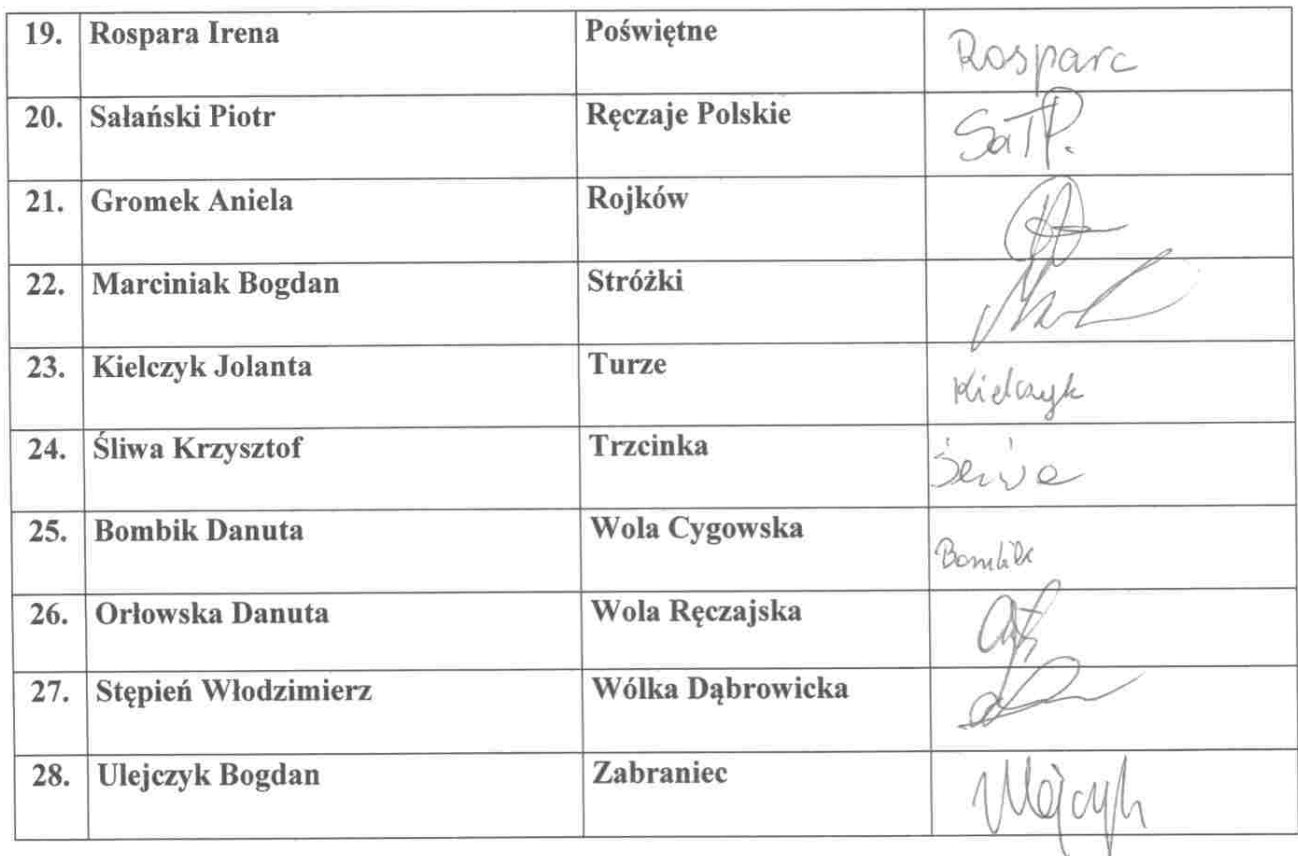 19. Rospara Irena Poświętne Rospara
20. Sałański Piotr Ręczaje Polskie Sał P.
21. Gromek Aniela Rojków
22. Marciniak Bogdan Stróżki
23. Kielczyk Jolanta Turze Kielczyk
24. Śliwa Krzysztof Trzcinka Śliwa
25. Bombik Danuta Wola Cygowska Bombik
26. Orłowska Danuta Wola Ręczajska
27. Stępień Włodzimierz Wólka Dąbrowicka
28. Ulejczyk Bogdan Zabraniec Ulejczyk